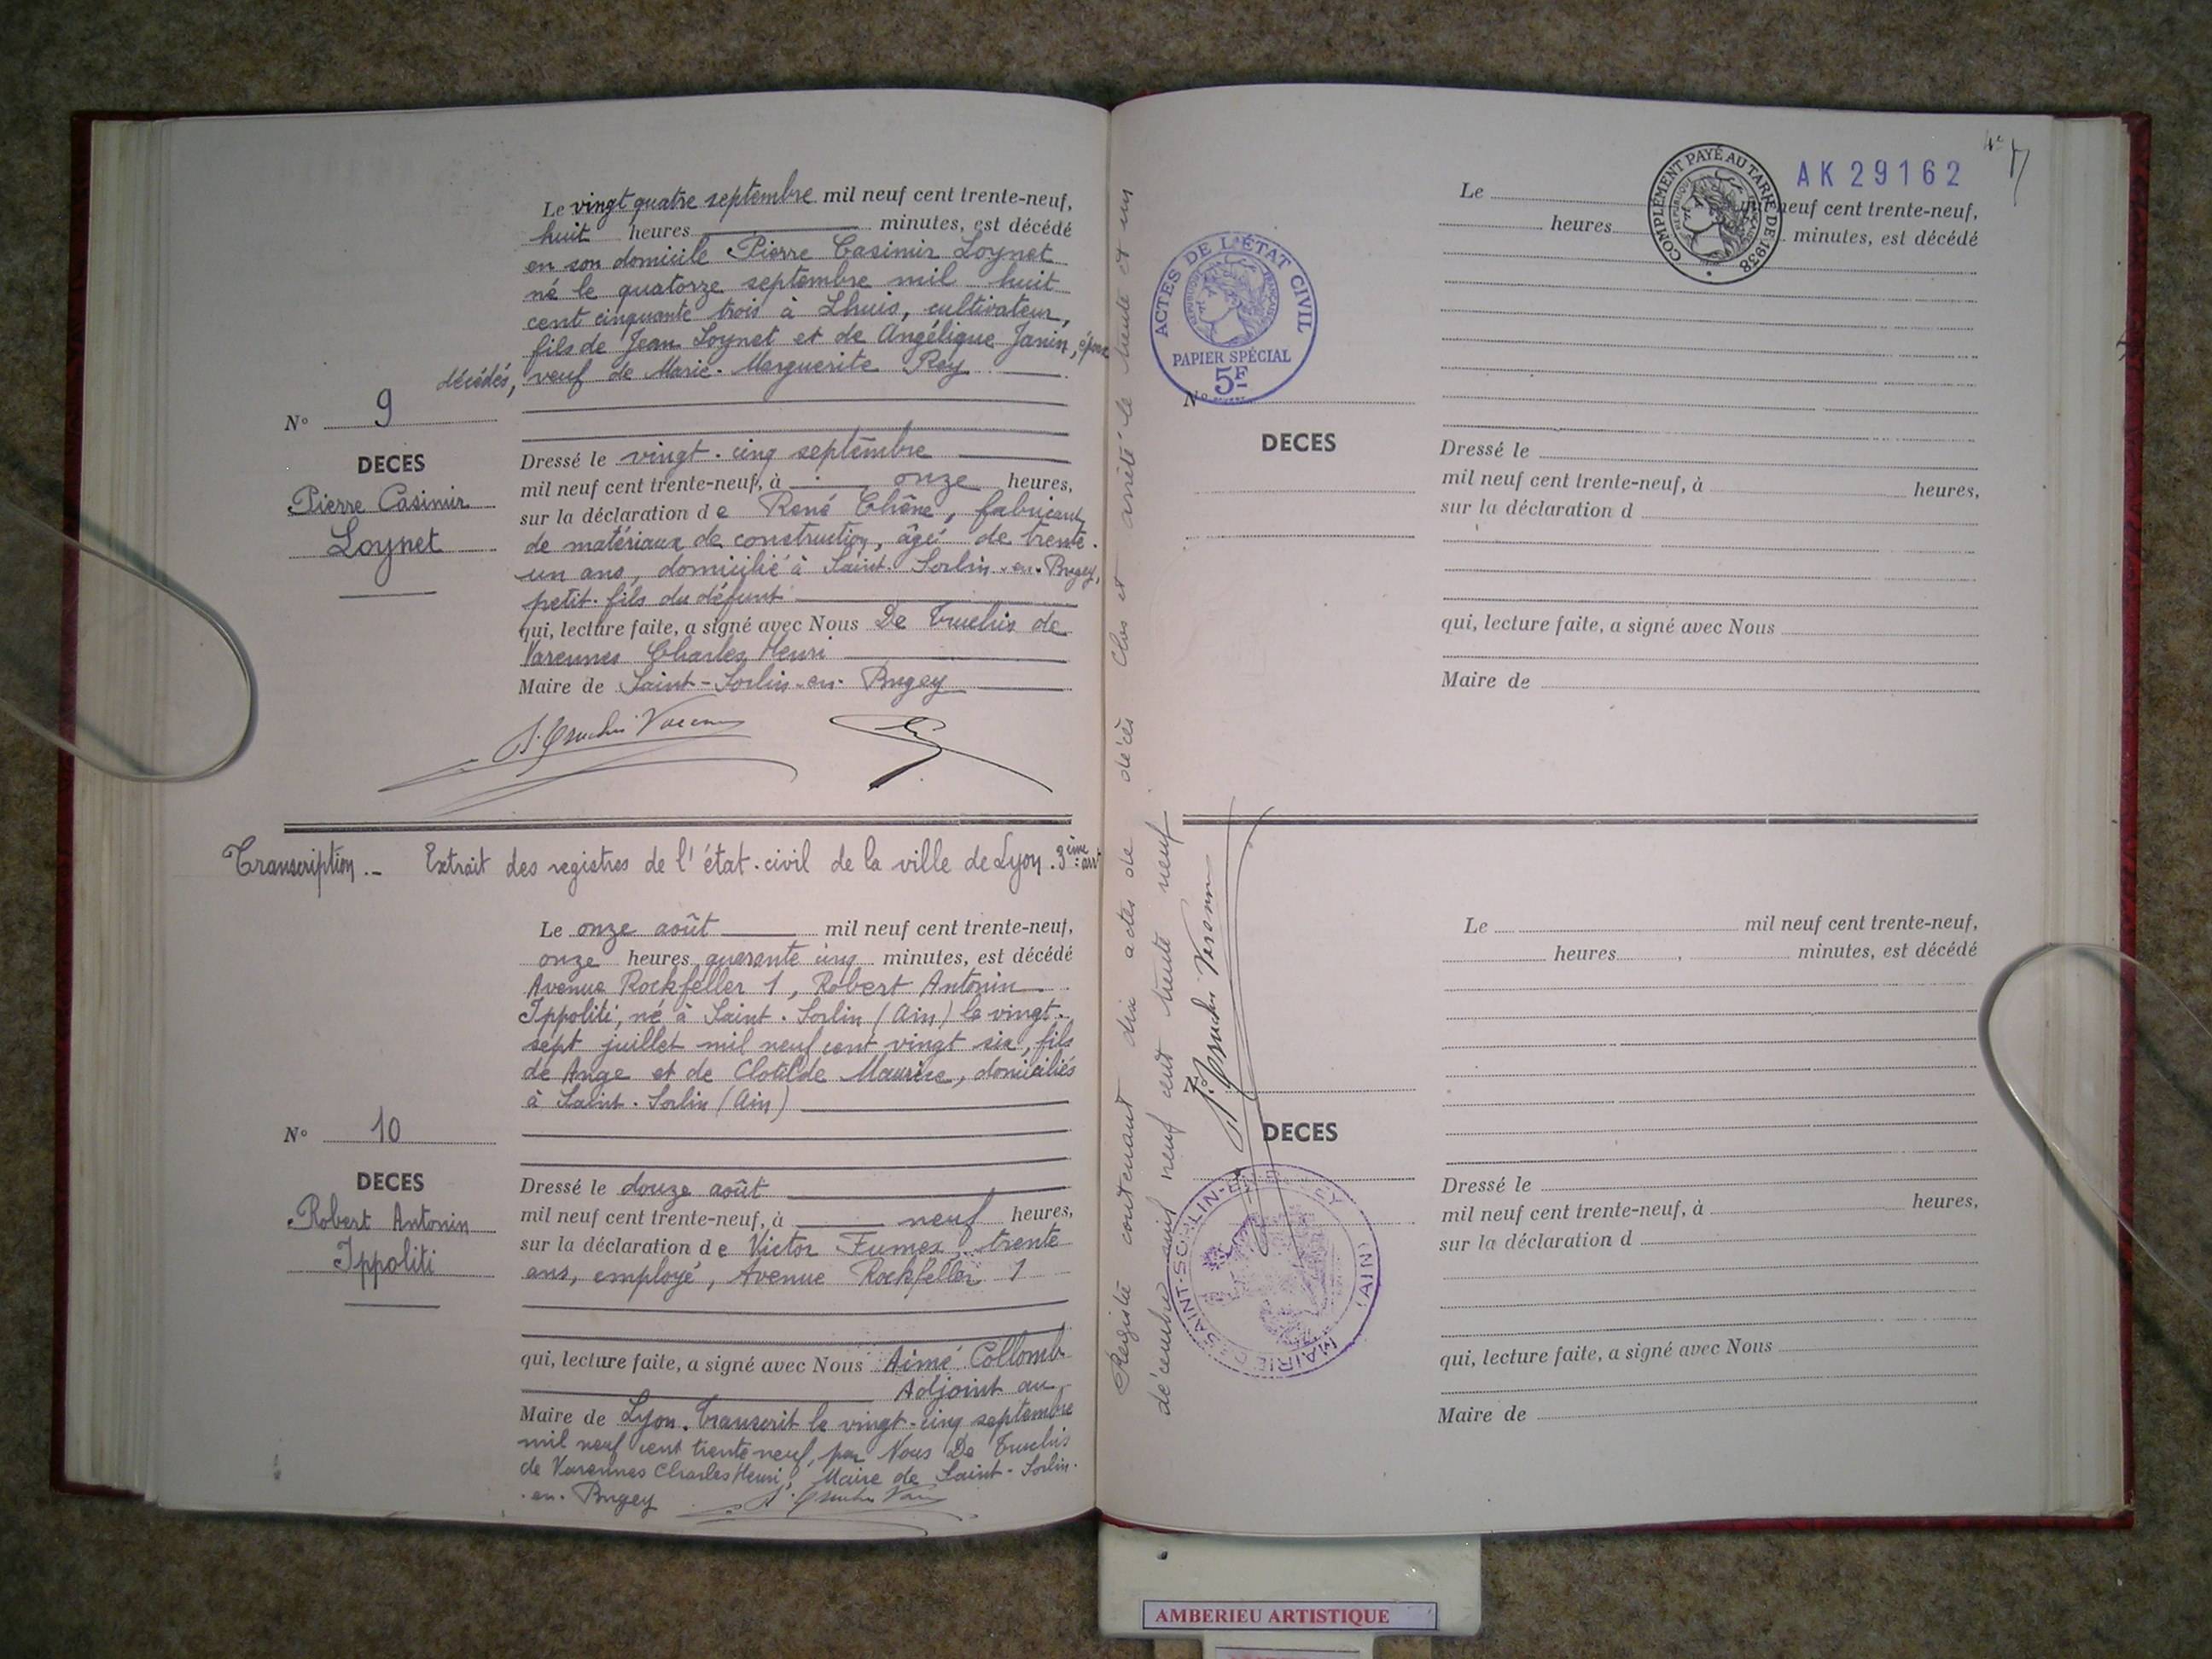 Le vingt quatre septembre mil neuf cent trente-neuf,
huit heures minutes, est décédé
en son domicile Pierre Casimir Loynet
né le quatorze septembre mil huit
cent cinquante trois à Lhuis, cultivateur,
fils de Jean Loynet et de Angélique Janin, époux
décédés, veuf de Marie-Marguerite Rey
N° 9
DECES
Pierre Casimir
Loynet
Dressé le vingt-cinq septembre
mil neuf cent trente-neuf, à onze heures,
sur la déclaration de René Chêne, fabricant
de matériaux de construction, âgé de trente-
un ans, domicilié à Saint-Sorlin-en-Bugey,
petit-fils du défunt
qui, lecture faite, a signé avec Nous De Truchis de
Varennes Charles Henri
Maire de Saint-Sorlin-en-Bugey
Transcription.- Extrait des registres de l'état-civil de la ville de Lyon. 3ème arrt
Le onze août mil neuf cent trente-neuf,
onze heures quarante cinq minutes, est décédé
Avenue Rockfeller 1, Robert Antonin
Ippoliti, né à Saint-Sorlin (Ain) le vingt-
sept juillet mil neuf cent vingt six, fils
de Ange et de Clotilde Maurise, domiciliés
à Saint-Sorlin (Ain)
N° 10
DECES
Robert Antonin
Ippoliti
Dressé le douze août
mil neuf cent trente-neuf, à neuf heures,
sur la déclaration de Victor Fumex, trente
ans, employé, Avenue Rockfeller 1
qui, lecture faite, a signé avec Nous Aimé Collomb
Adjoint au
Maire de Lyon. Transcrit le vingt-cinq septembre
mil neuf cent trente neuf, par Nous De Truchis
de Varennes Charles Henri, Maire de Saint-Sorlin-
-en-Bugey
Registre contenant dix actes de décès Clos et arrêté le trente et un
décembre mil neuf cent trente neuf
COMPLÉMENT PAYÉ AU TARIF DE 1938
AK 29162
ACTES DE L'ÉTAT CIVIL
RÉPUBLIQUE FRANÇAISE
PAPIER SPÉCIAL
5F
Le neuf cent trente-neuf,
heures minutes, est décédé
N°
DECES
Dressé le
mil neuf cent trente-neuf, à heures,
sur la déclaration d
qui, lecture faite, a signé avec Nous
Maire de
Le mil neuf cent trente-neuf,
heures, minutes, est décédé
N°
DECES
MAIRIE DE SAINT-SORLIN-EN-BUGEY (AIN)
Dressé le
mil neuf cent trente-neuf, à heures,
sur la déclaration d
qui, lecture faite, a signé avec Nous
Maire de
AMBERIEU ARTISTIQUE